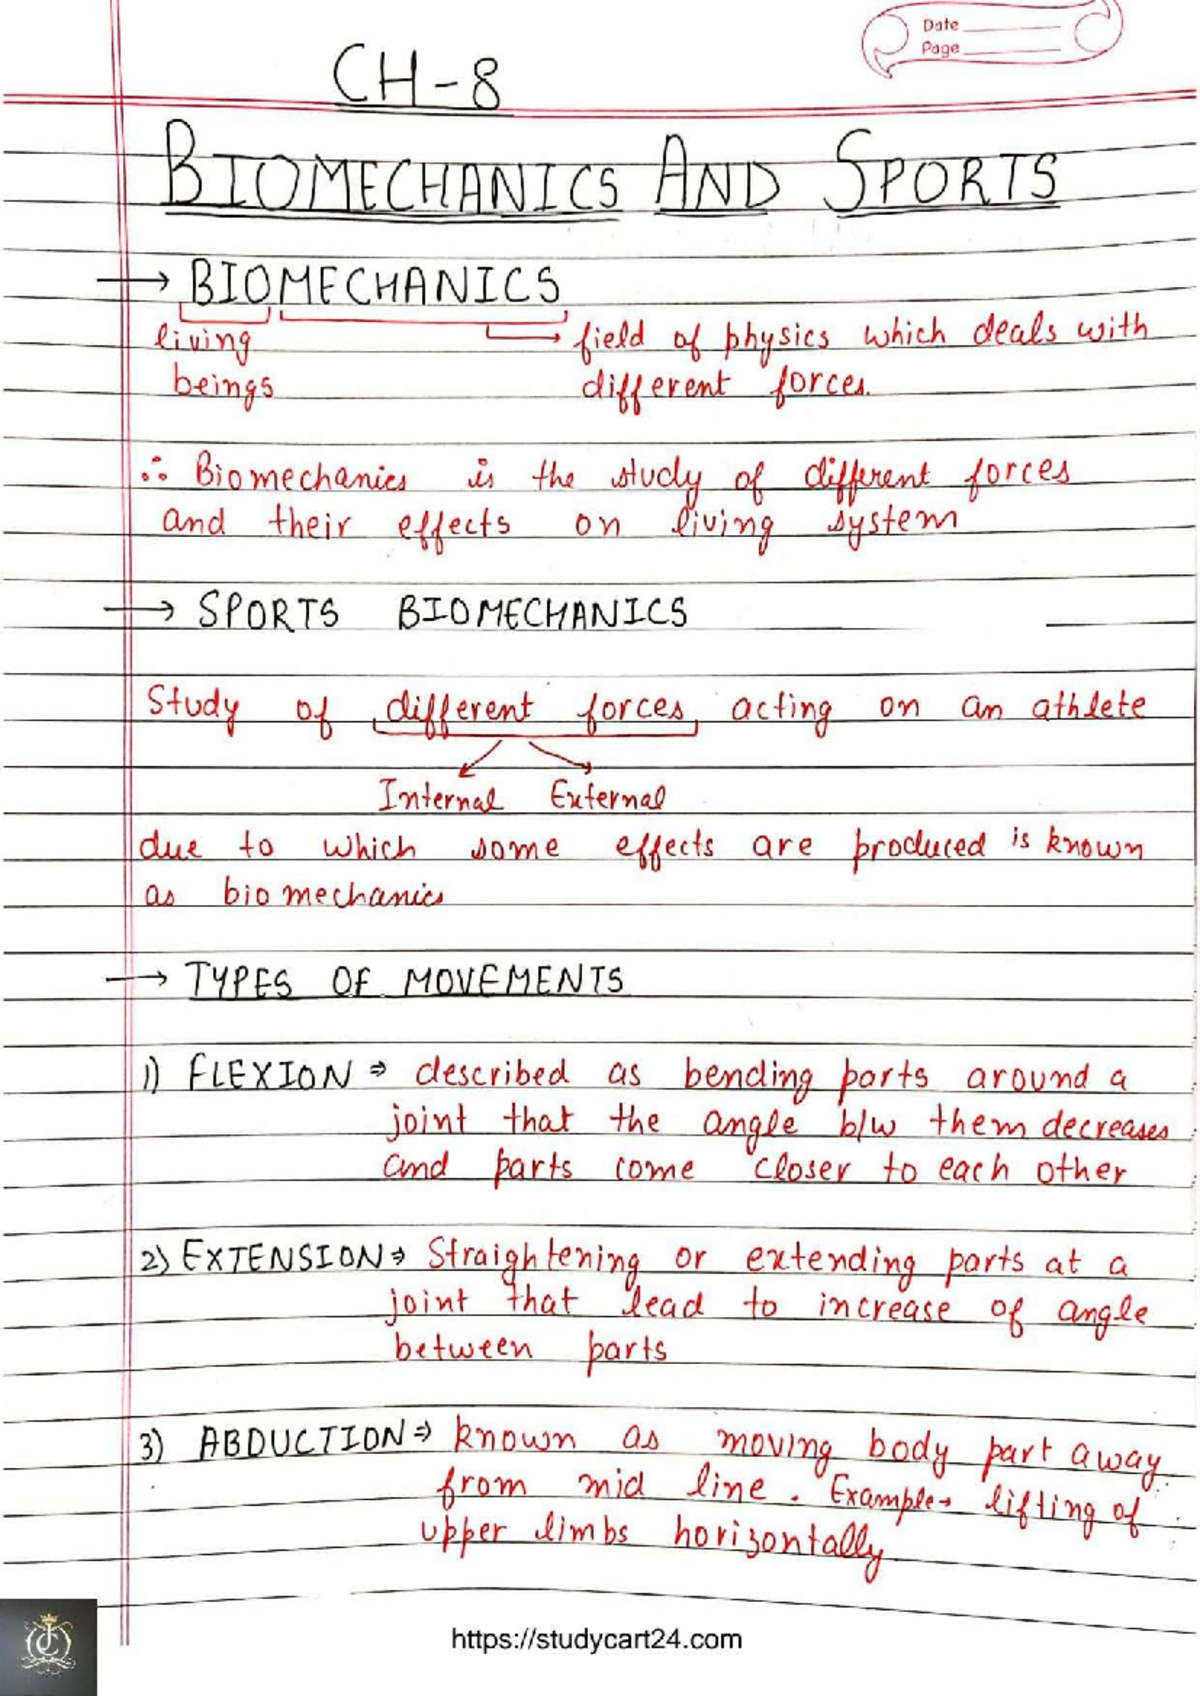 Date
Page
CH-8
BIOMECHANICS AND SPORTS
→ BIOMECHANICS
living
beings
→ field of physics which deals with
different forces.
∴ Biomechanics is the study of different forces
and their effects on living system
→ SPORTS BIOMECHANICS
Study of different forces acting on an athlete
Internal External
due to which some effects are produced is known
as biomechanics
→ TYPES OF MOVEMENTS
1) FLEXION ⇒ described as bending parts around a
joint that the angle b/w them decreases
and parts come closer to each other
2) EXTENSION ⇒ Straightening or extending parts at a
joint that lead to increase of angle
between parts
3) ABDUCTION ⇒ known as moving body part away
from mid line. Example → lifting of
upper limbs horizontally
https://studycart24.com